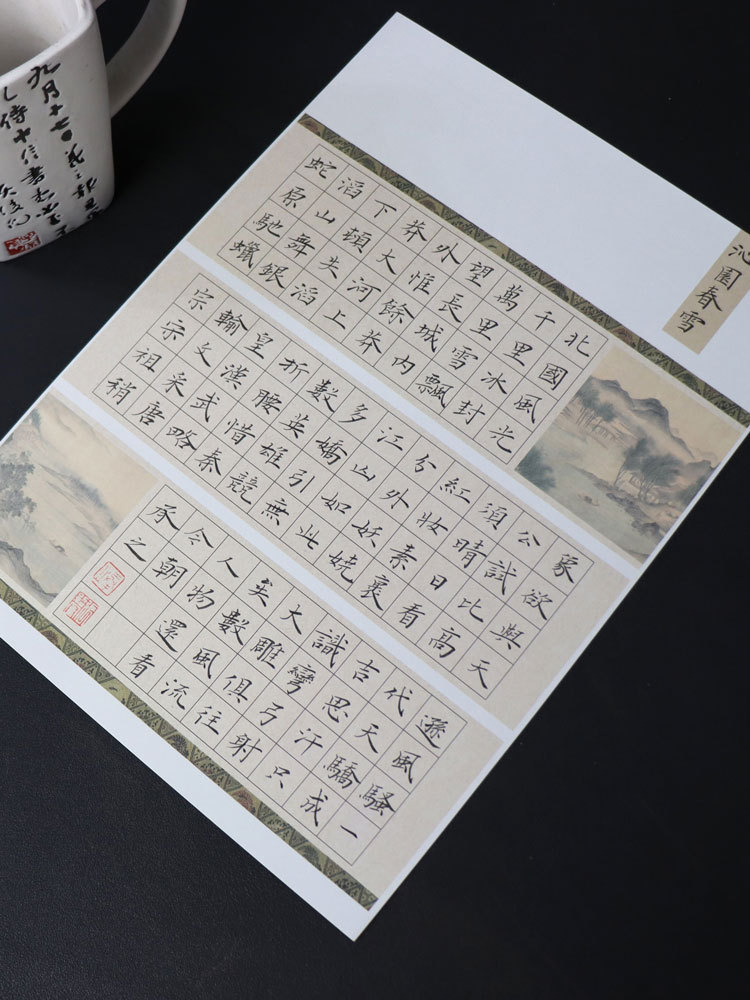 沁園春雪
北國風光
千里冰封
萬里雪飄
望長城內
外惟餘莽
莽大河上
下頓失滔
滔山舞銀
蛇原馳蠟
象欲與天
公試比高
須晴日看
紅妝素裹
分外妖嬈
江山如此
多嬌引無
數英雄競
折腰惜秦
皇漢武略
輸文采唐
宗宋祖稍
遜風騷一
代天驕成
吉思汗只
識彎弓射
大雕俱往
矣數風流
人物還看
今朝
承之
九月十七日羲之報且
侍中信書想必至